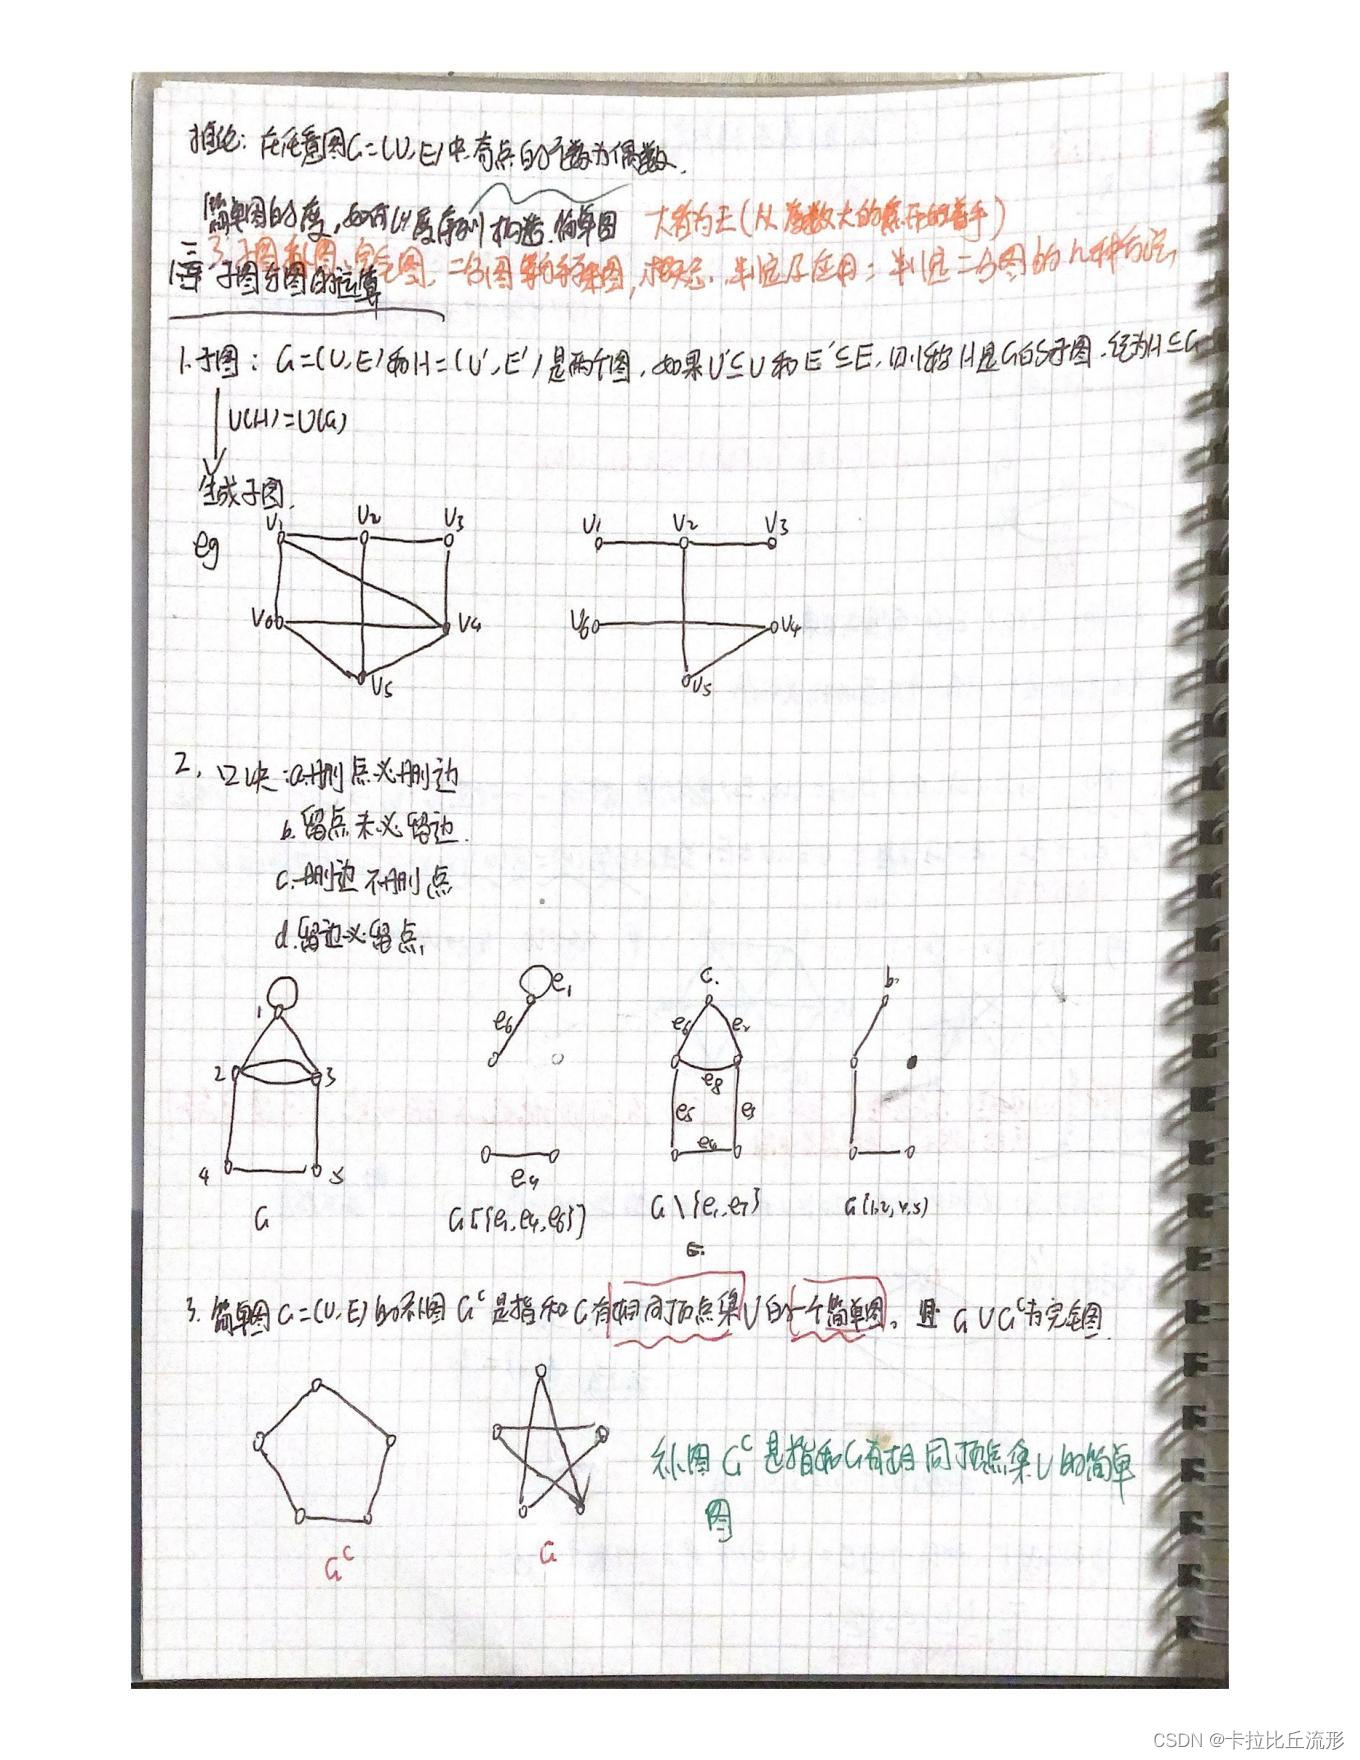 推论：在任意图G=(V,E)中奇点的个数为偶数.
简单图的度,如何以度序列构造简单图 大者为王(从度数大的点开始着手)
3.子图补图,完全图,二分图等特殊图,概念.判定及应用：判定二分图的几种方法
三 子图与图的运算
1.子图：G=(V,E)和H=(V',E')是两个图,如果V'⊆V和E'⊆E,则称H是G的子图.记为H⊆G
V(H)=V(G)
生成子图.
eg
V1 V2 V3 V1 V2 V3
V6 V4 V6 V4
V5 V5
2,口诀:a.删点必删边
b.留点未必留边.
c.删边不删点
d.留边必留点,
e1 c. b.
1 e6 e6 e2
2 3 e8
e5 e3
4 5 e4 e4
G G[{e1,e4,e6}] G\{e1,e7} G(1,2,4,5)
3.简单图G=(V,E)的补图Gᶜ是指和G有相同顶点集V的一个简单图,且G∪Gᶜ为完全图.
补图Gᶜ是指和G有相同顶点集V的简单
图
Gᶜ G
CSDN @卡拉比丘流形